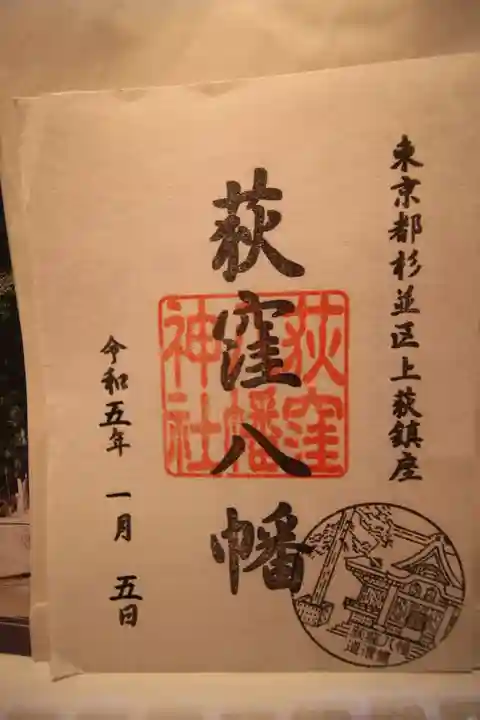 東京都杉並区上荻鎮座
荻窪八幡
荻窪
八幡
神社
令和五年 一月 五日
荻窪八幡